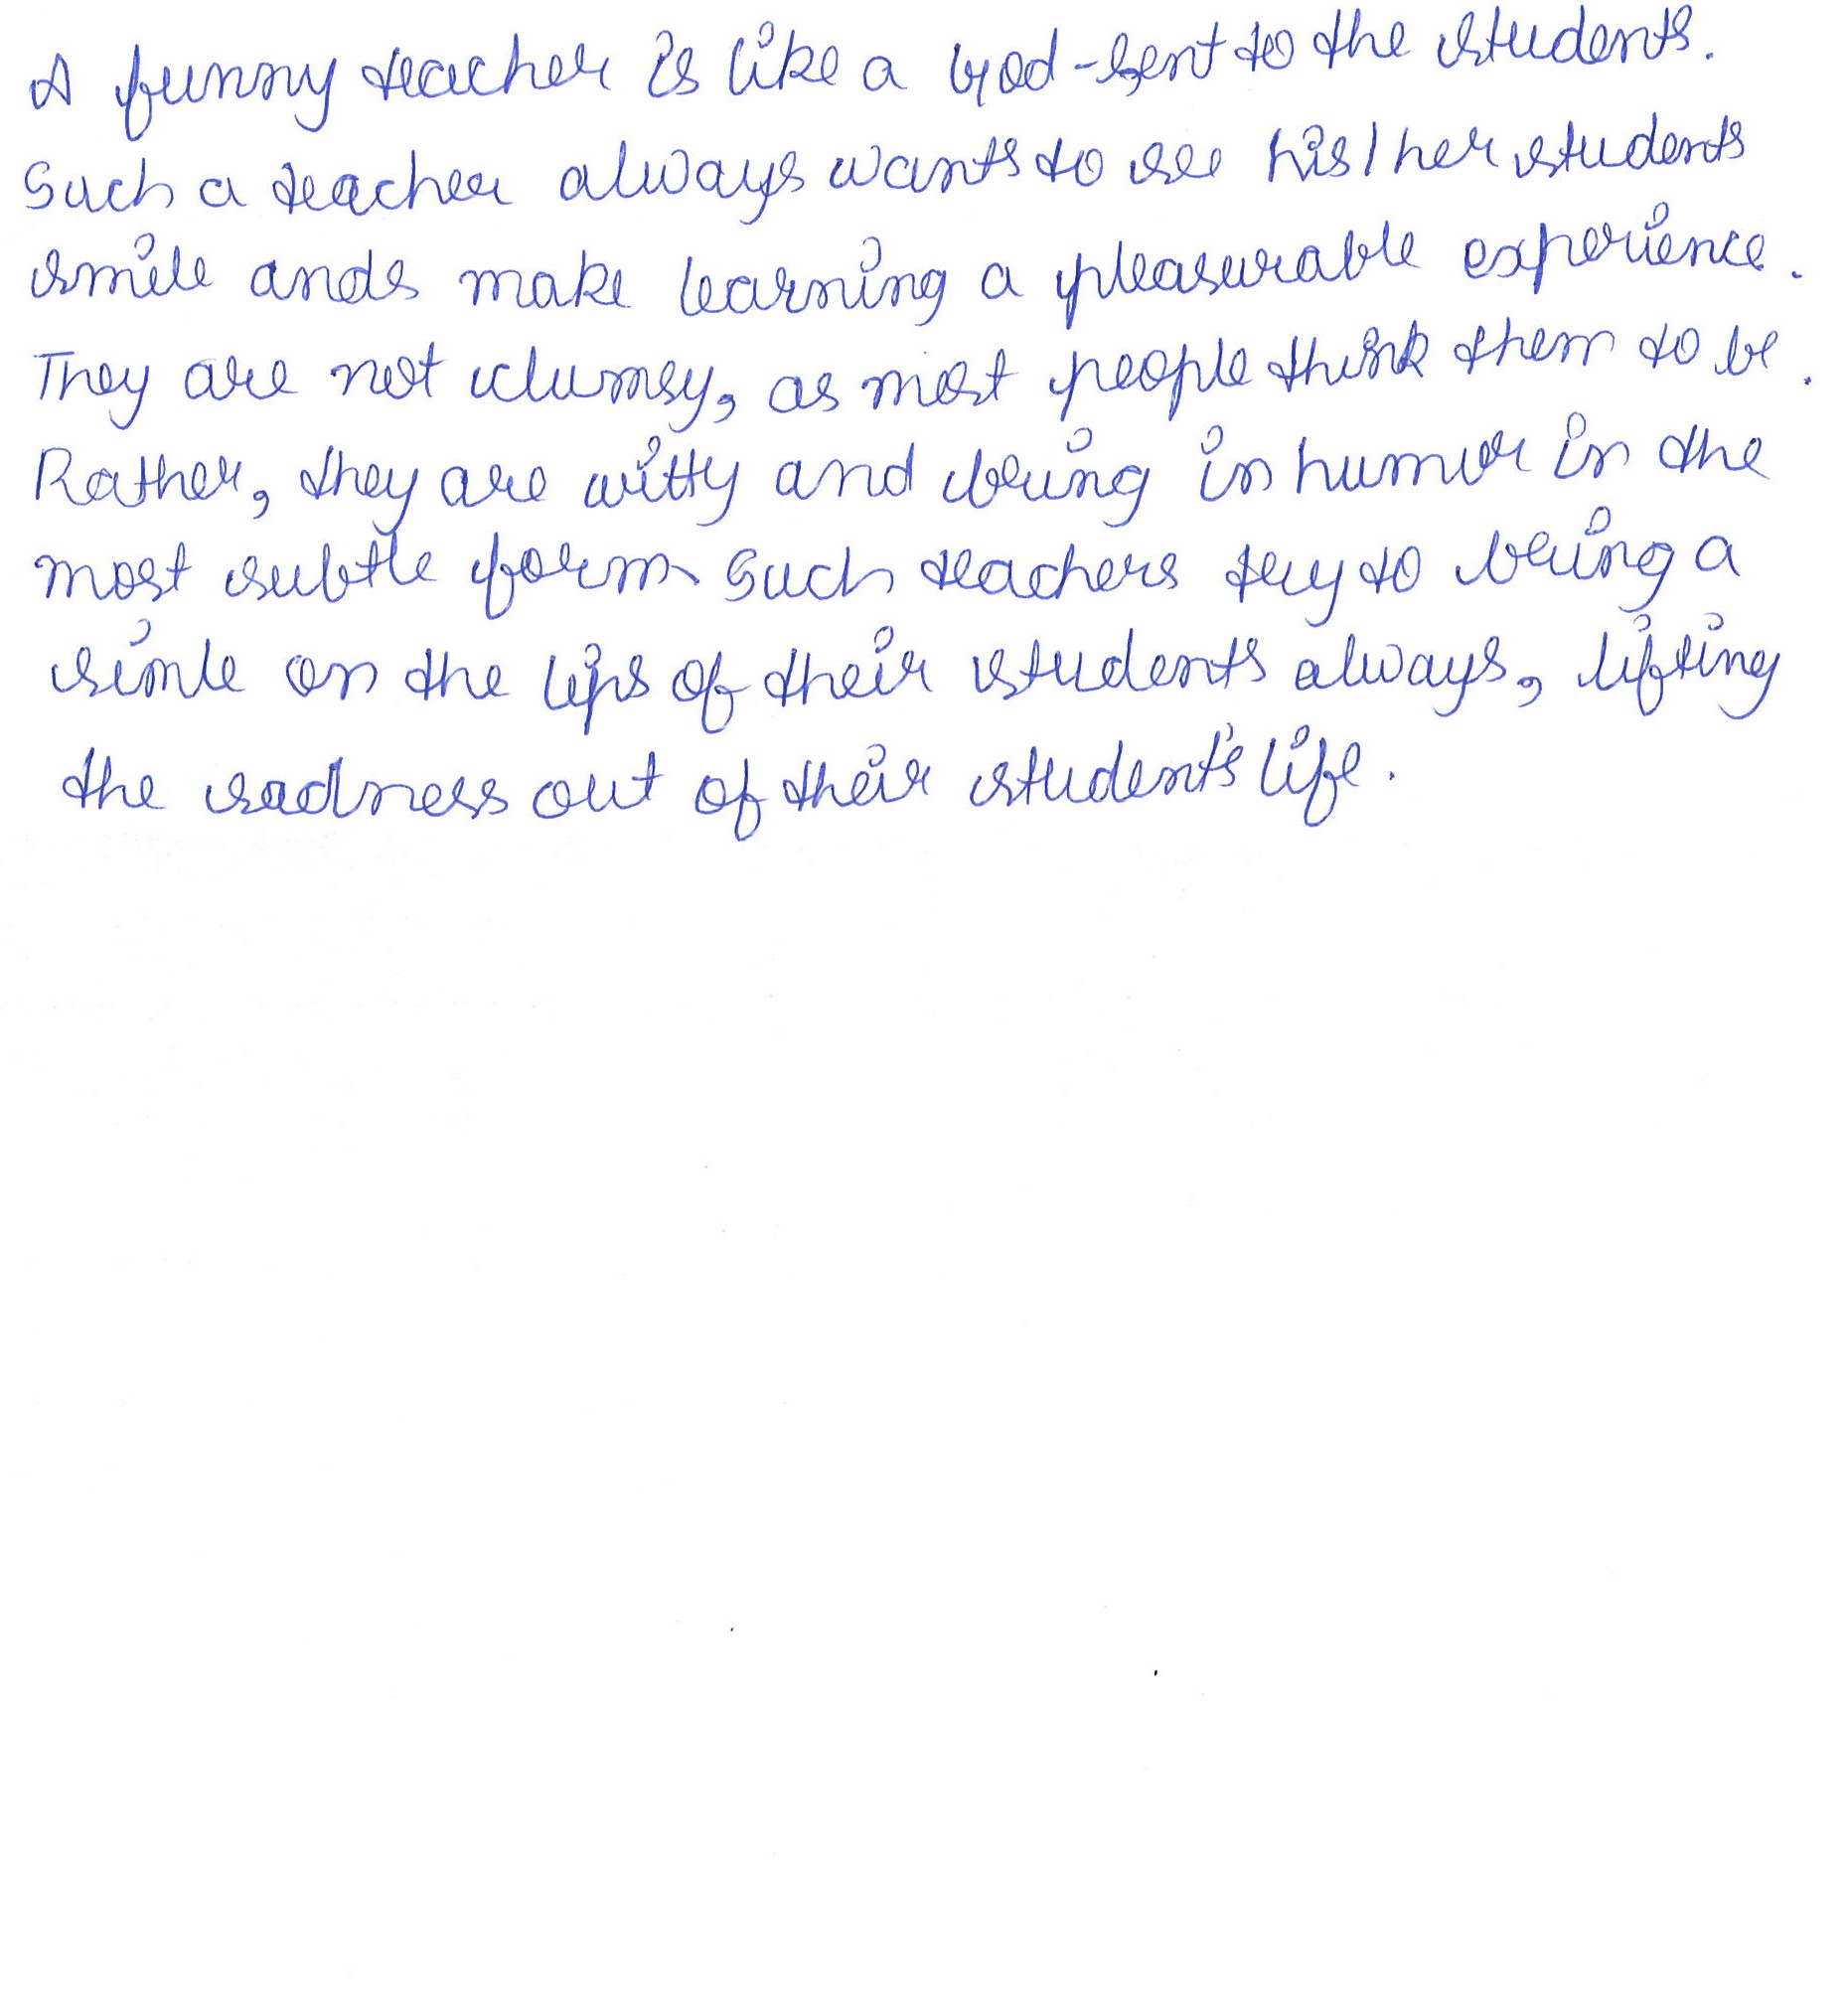 A funny teacher is like a God-sent to the students.
Such a teacher always wants to see his/her students
smile ands make learning a pleasurable experience.
They are not clumsy, as most people think them to be.
Rather, they are witty and bring in humor in the
most subtle form. Such teachers try to bring a
simle on the lips of their students always, lifting
the sadness out of their student's life.